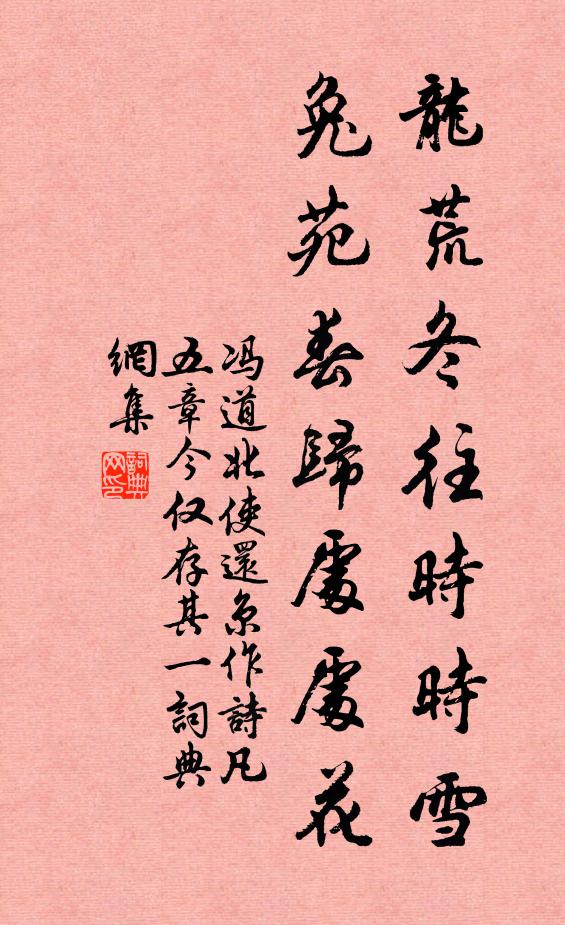 龍荒冬往時時雪
兔苑春歸處處花
冯道北使還京作詩凡
五章今仅存其一詞典
網集
詞典
网印